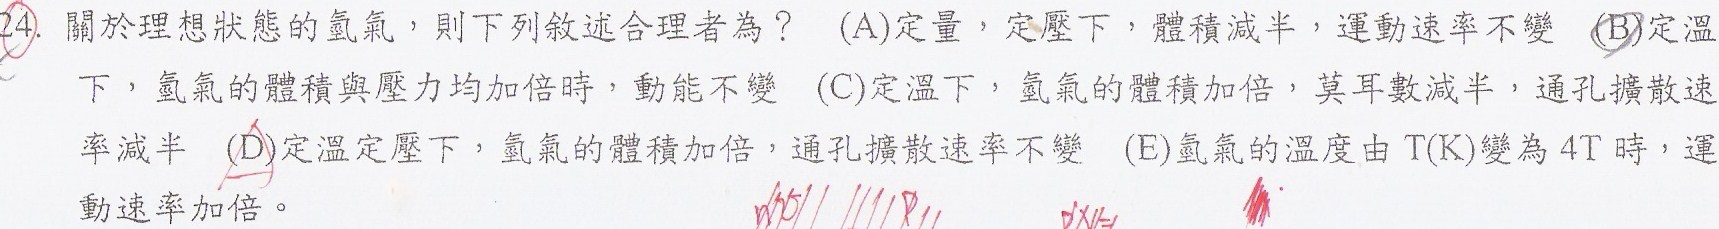 24. 關於理想狀態的氫氣，則下列敘述合理者為？ (A)定量，定壓下，體積減半，運動速率不變 (B)定溫
下，氫氣的體積與壓力均加倍時，動能不變 (C)定溫下，氫氣的體積加倍，莫耳數減半，通孔擴散速
率減半 (D)定溫定壓下，氫氣的體積加倍，通孔擴散速率不變 (E)氫氣的溫度由 T(K)變為 4T 時，運
動速率加倍。